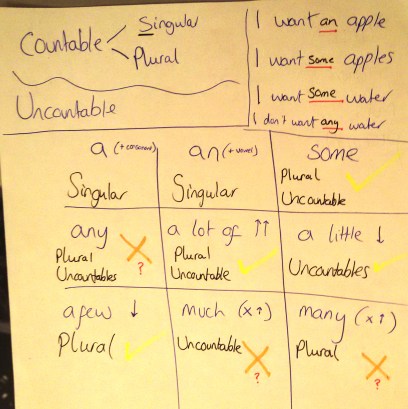 Countable
Singular
Plural
Uncountable
I want an apple
I want some apples
I want some water
I don't want any water
a (+ consonant)
Singular
an (+ vowel)
Singular
some
Plural
Uncountable
any
Plural
Uncountables
?
a lot of ↑↑
Plural
Uncountable
a little ↓
Uncountables
a few ↓
Plural
much (x↑)
Uncountable
?
many (x↑)
Plural
?